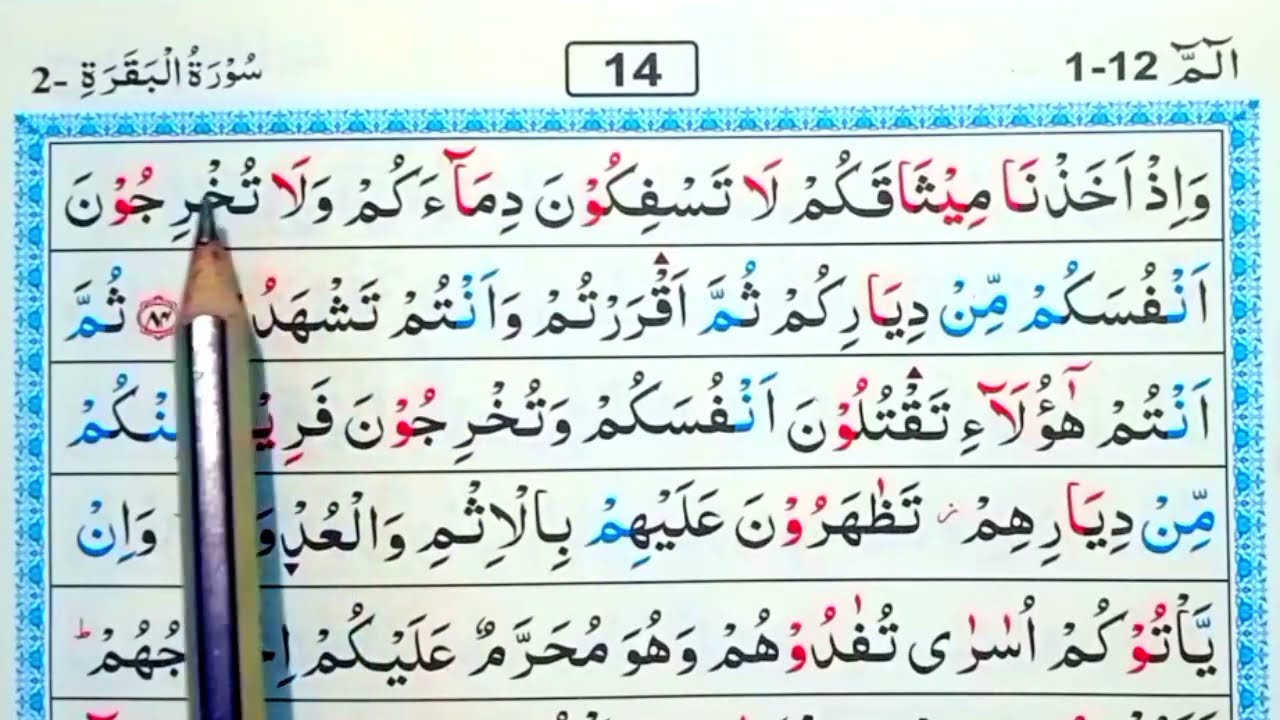 الٓمّٓ 1-12
14
سُوْرَةُ الْبَقَرَةِ -2
وَاِذْ اَخَذْنَا مِيْثَاقَكُمْ لَا تَسْفِكُوْنَ دِمَآءَكُمْ وَلَا تُخْرِجُوْنَ
اَنْفُسَكُمْ مِّنْ دِيَارِكُمْ ثُمَّ اَقْرَرْتُمْ وَاَنْتُمْ تَشْهَدُ ٨٣ ثُمَّ
اَنْتُمْ هٰٓؤُلَآءِ تَقْتُلُوْنَ اَنْفُسَكُمْ وَتُخْرِجُوْنَ
مِّنْ دِيَارِهِمْ ز تَظٰهَرُوْنَ عَلَيْهِمْ بِالْاِثْمِ وَاِنْ
يَّاْتُوْكُمْ اُسٰرٰى تُفٰدُوْهُمْ وَهُوَ مُحَرَّمٌ عَلَيْكُمْ ط